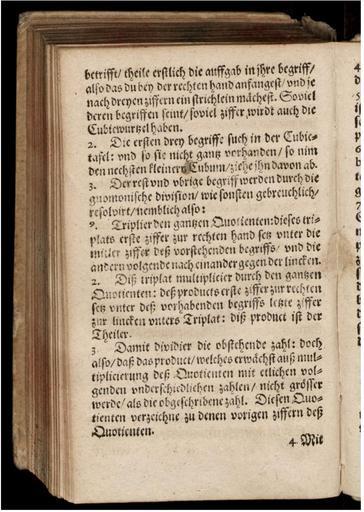 betrifft/ theile erstlich die auffgab in jhre begriff/
also das du bey der rechten hand anfangest/ vnd je
nach dreyen ziffern ein strichlein machest. Soviel
deren begriffen seint/ soviel ziffer wirdt auch die
Cubicwurtzel haben.
2. Die ersten drey begriffe such in der Cubic-
tafel: vnd so sie nicht gantz vorhanden/ so nim
den nechsten kleinern Cubum/ ziehe jhn davon ab.
3. Der rest vnd vbrige begriff werden durch die
gnomonische division/ wie sonsten gebreuchlich/
resolvirt/ nemblich also:
Triplier den gantzen Quotienten: dieses tri-
plats erste ziffer zur rechten hand setz vnter die
mitler ziffer deß vorstehenden begriffs/ vnd die
andern volgende nach einander gegen der lincken.
2. Diß triplat multiplicier durch den gantzen
Quotienten: deß products erste ziffer zur rechten
setz vnter deß vorhabenden begriffs letzte ziffer
zur lincken vnters Triplat: diß product ist der
Theiler.
3 Damit dividier die obstehende zahl: doch
also/ daß das product/ welches erwächst auß mul-
tiplicierung deß Quotienten mit etlichen vol-
genden vnderschiedlichen zahlen/ nicht grösser
werde/ als die obgeschribene zahl. Diesen Quo-
tienten verzeichne zu denen vorigen ziffern deß
Quotienten.
4. Mit